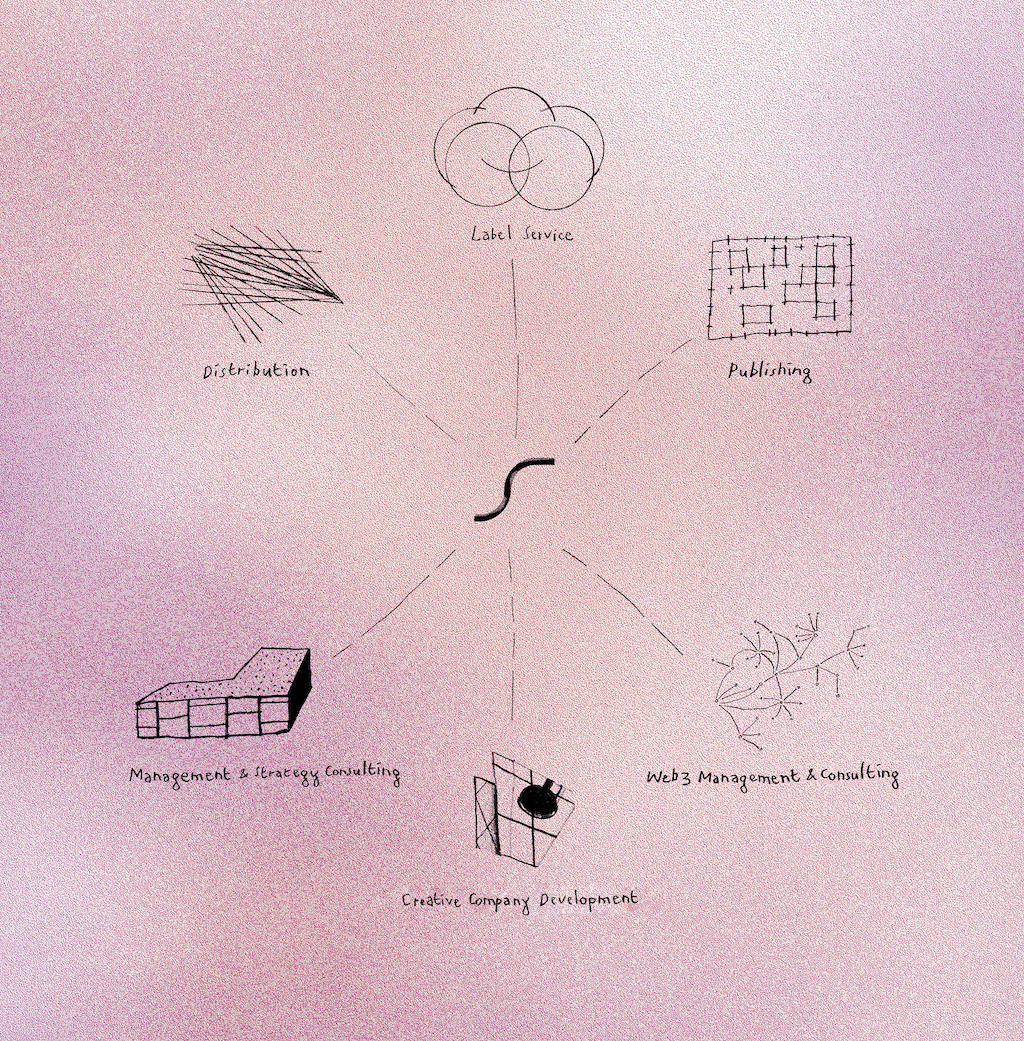 Label Service
Distribution
Publishing
Management & Strategy Consulting
Web3 Management & Consulting
Creative Company Development